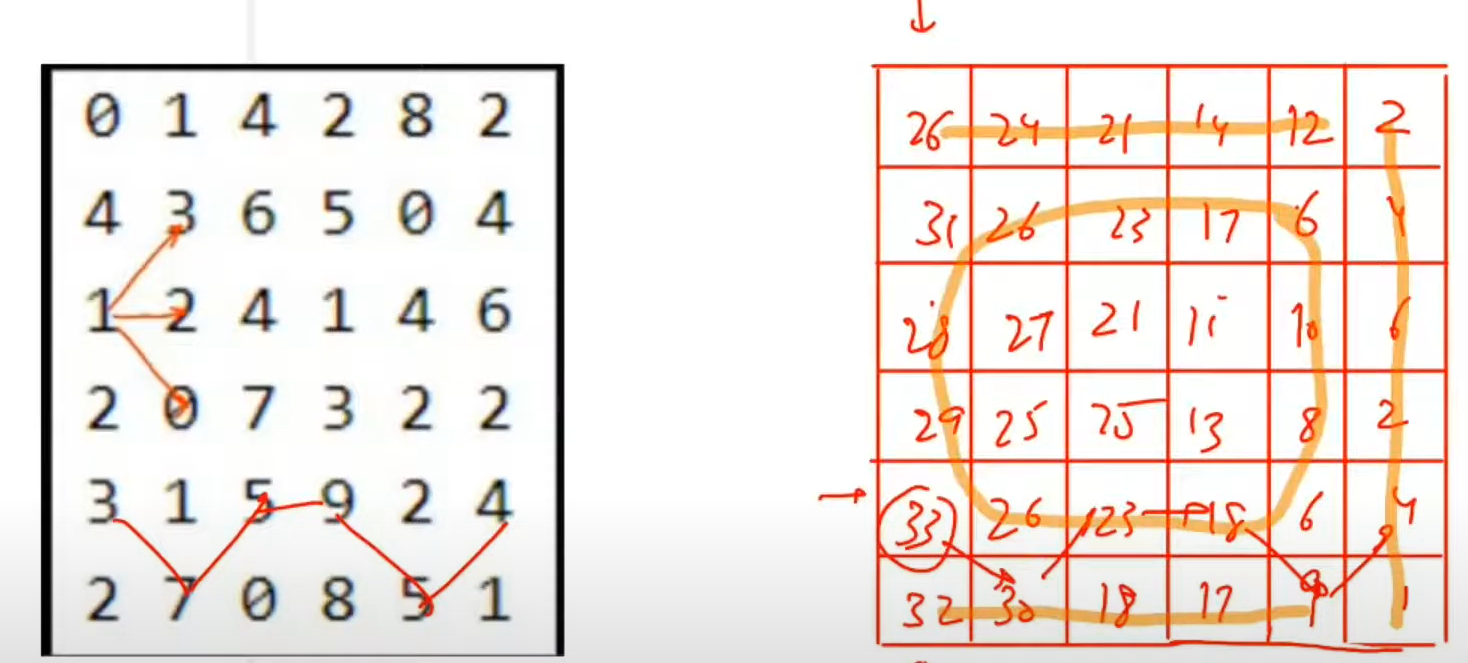 0 1 4 2 8 2
4 3 6 5 0 4
1 2 4 1 4 6
2 0 7 3 2 2
3 1 5 9 2 4
2 7 0 8 5 1
26 24 21 14 12 2
31 26 23 17 6 4
28 27 21 11 10 6
29 25 25 13 8 2
33 26 23 18 6 4
32 30 18 17 9 1